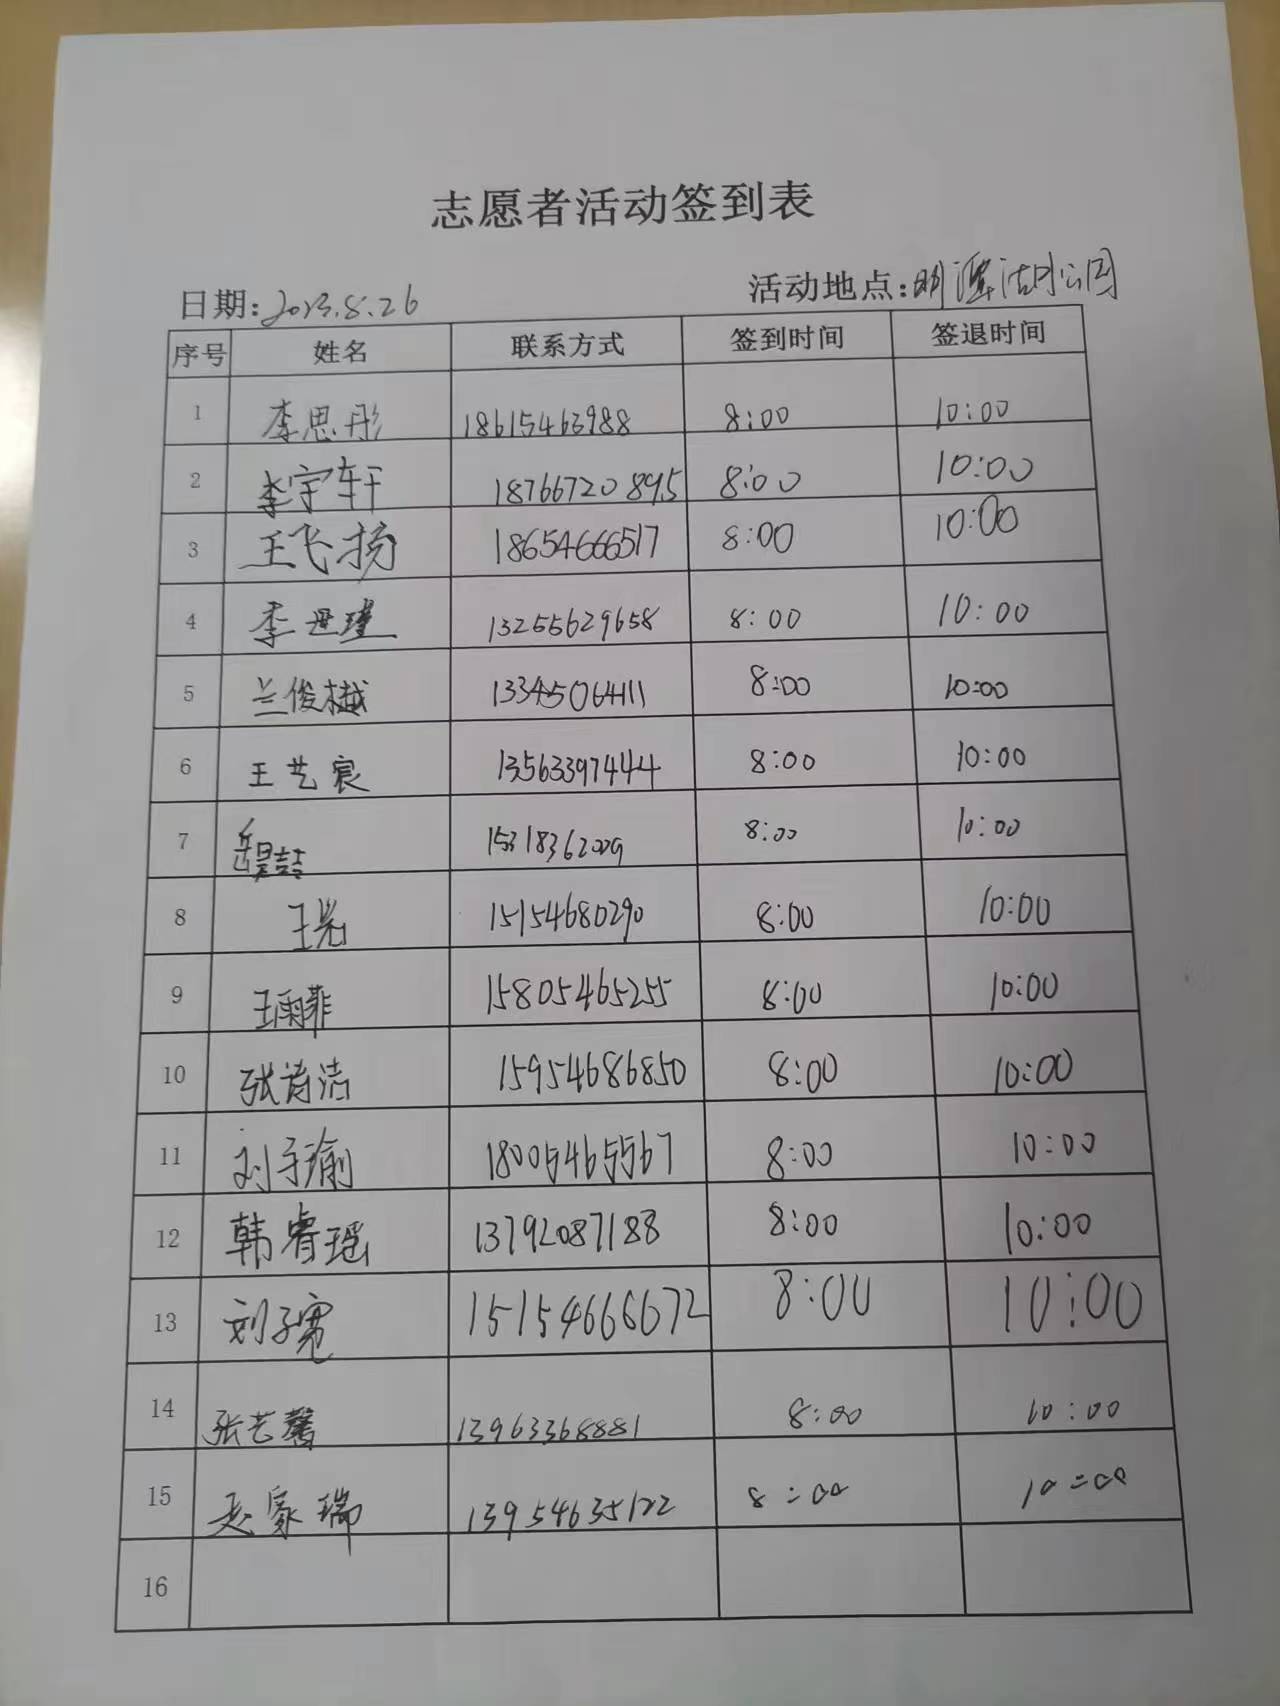 志愿者活动签到表
日期:2023.8.26 活动地点:明潭湖公园
序号 姓名 联系方式 签到时间 签退时间
1 李思彤 18615463988 8:00 10:00
2 李宇轩 18766720895 8:00 10:00
3 王飞扬 18654666517 8:00 10:00
4 李世瑾 13255629658 8:00 10:00
5 兰俊樾 13345064111 8:00 10:00
6 王艺宸 13563397444 8:00 10:00
7 岳昊喆 15318362009 8:00 10:00
8 王岩 15154680290 8:00 10:00
9 王雨菲 15805465255 8:00 10:00
10 张诗洁 15954686850 8:00 10:00
11 刘子瑜 18005465567 8:00 10:00
12 韩睿瑶 13792087188 8:00 10:00
13 刘子宽 15154666672 8:00 10:00
14 张艺馨 13963368881 8:00 10:00
15 赵家瑞 13954635122 8:00 10:00
16